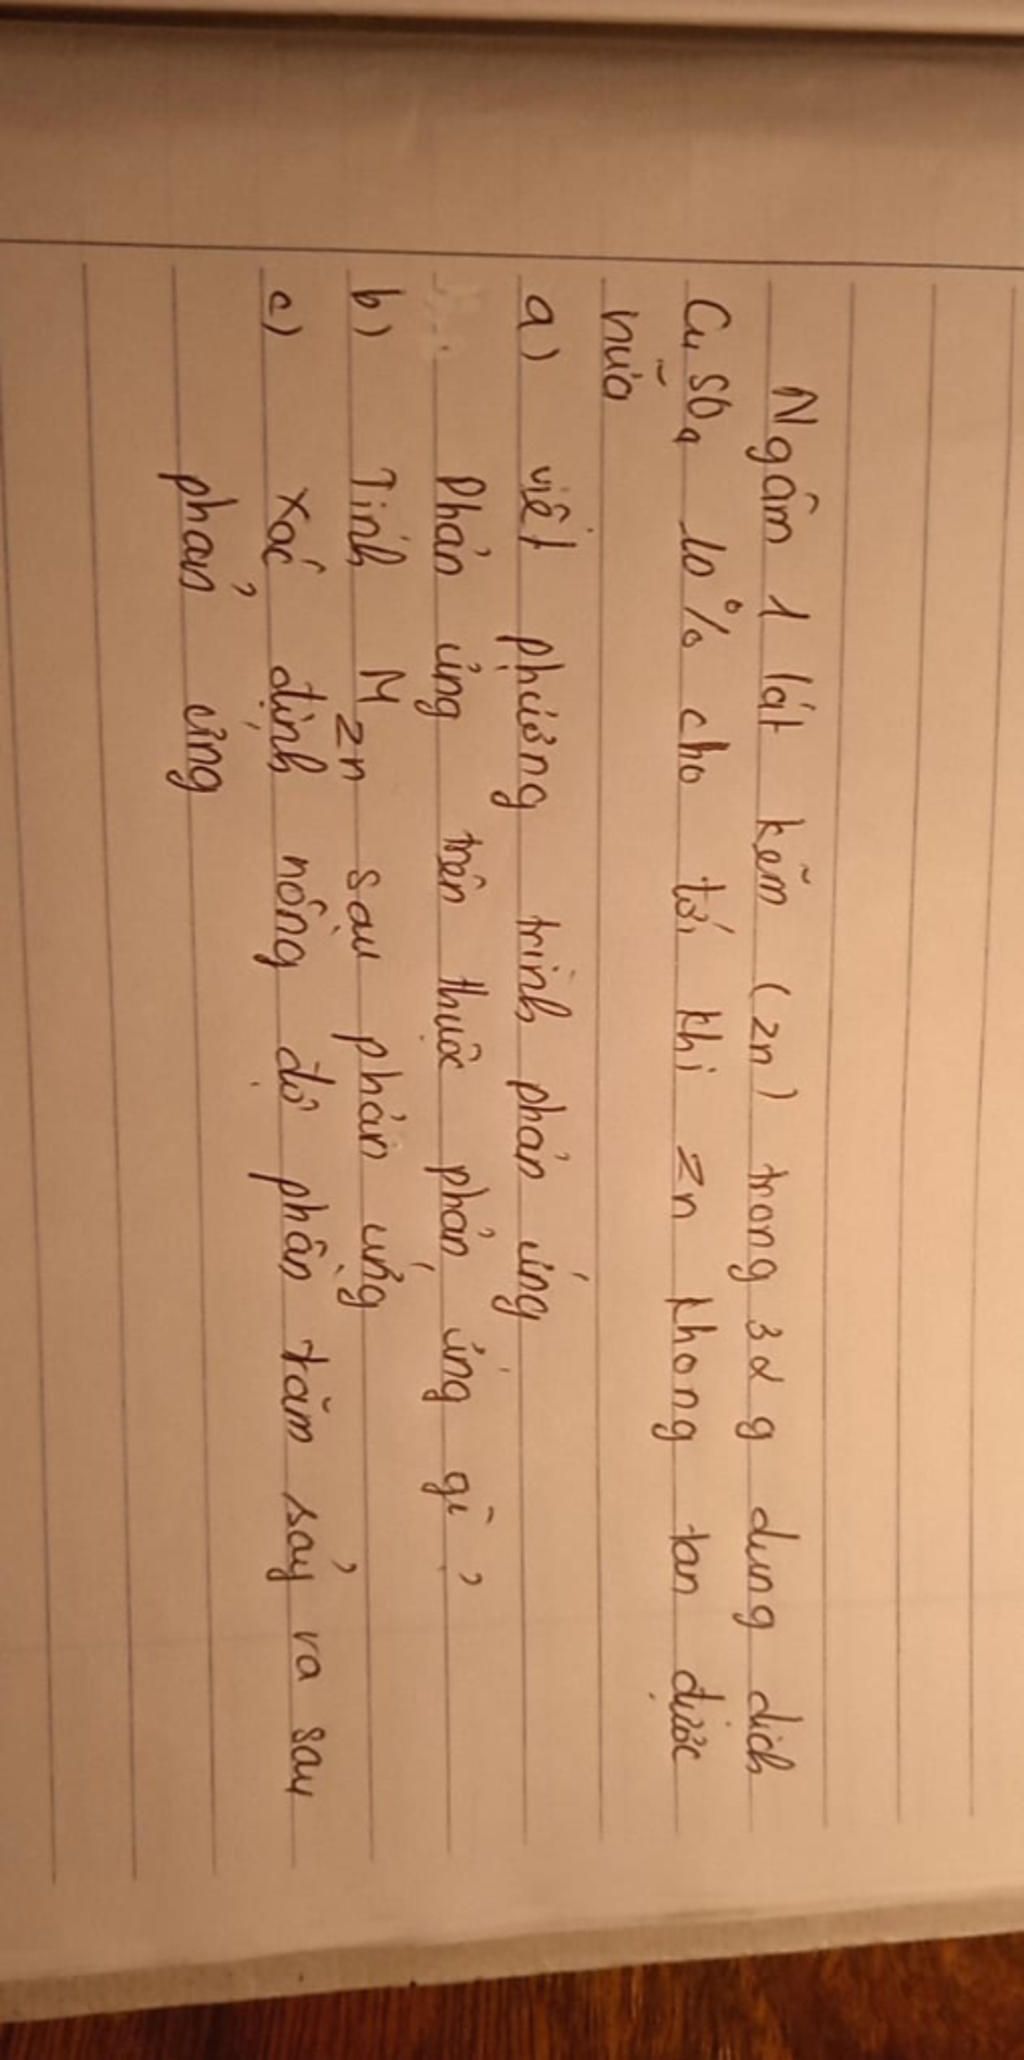 Ngâm 1 lát kẽm (zn) trong 32 g dung dich
CuSO4 10% cho tới khi zn khong tan được
nữa
a) viết phương trình phản ứng
Phản ứng trên thuộc phản ứng gì?
b) Tính M zn sau phản ứng
c) Xác định nồng độ phần trăm sảy ra sau
phản ứng